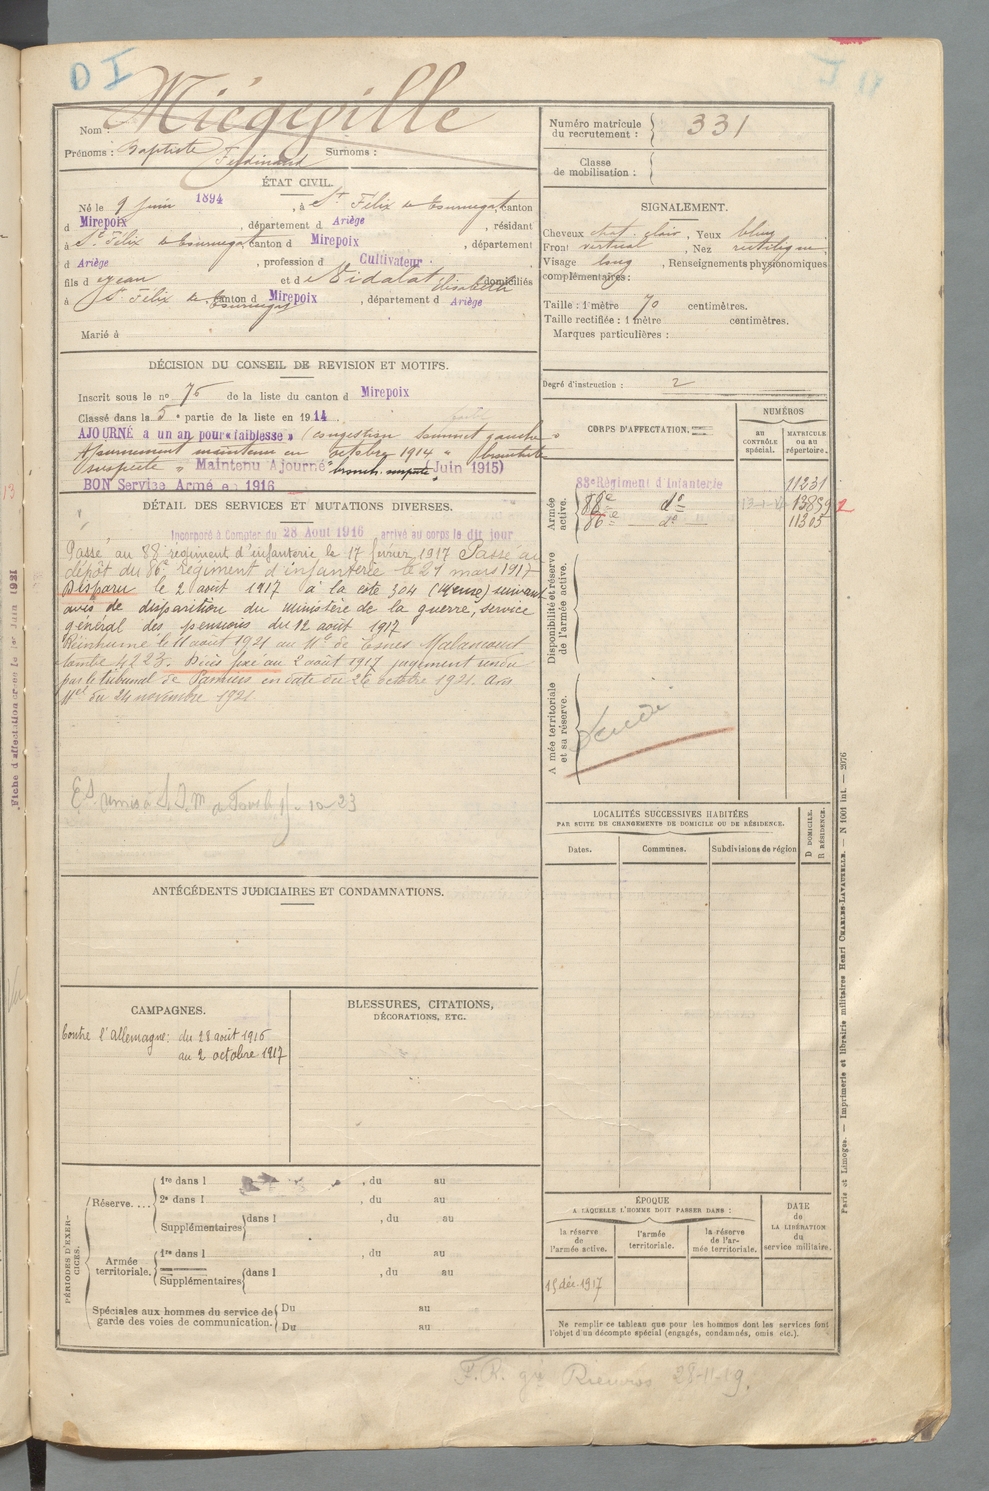 D I
Nom : Miégeville
Prénoms : Baptiste Ferdinand Surnoms :
ÉTAT CIVIL.
Né le 9 juin 1894, à St Félix de Tournegat, canton
d Mirepoix, département d Ariège, résidant
à St Félix de Tournegat canton d Mirepoix, département
d Ariège, profession d Cultivateur.
fils d Jean et d Vidalat Elisabeth domiciliés
à St Félix de Tournegat canton d Mirepoix, département d Ariège
Marié à
DÉCISION DU CONSEIL DE REVISION ET MOTIFS.
Inscrit sous le no 75 de la liste du canton d Mirepoix
Classé dans la 5e partie de la liste en 1914.
AJOURNÉ a un an pour « faiblesse » (congestion sommet gauche »
Ajournement maintenu en octobre 1914 « bronchite
suspecte » Maintenu Ajourné « bronch. suspecte (Juin 1915)
BON Service Armé en 1916
DÉTAIL DES SERVICES ET MUTATIONS DIVERSES.
Incorporé à Compter du 28 Aout 1916 arrivé au corps le dit jour
Passé au 88e régiment d'infanterie le 17 février 1917 Passé au
dépôt du 86e Régiment d'infanterie le 21 mars 1917
Disparu le 2 août 1917 à la côte 304 (Meuse) suivant
avis de disparition du ministère de la guerre, service
général des pensions du 12 août 1917
Réinhumé le 11 août 1921 au Mre de Esnes Malancourt
tombe 4223. Décès fixé au 2 août 1917 jugement rendu
par le tribunal de Pamiers en date du 26 octobre 1921. Avis
Mel du 24 novembre 1921.
remis à S. I. M. 10-23
ANTÉCÉDENTS JUDICIAIRES ET CONDAMNATIONS.
CAMPAGNES.
Contre l'Allemagne: du 28 août 1916
au 2 octobre 1917
BLESSURES, CITATIONS,
DÉCORATIONS, ETC.
PÉRIODES D'EXERCICES.
Réserve....
1re dans l , du au
2e dans l , du au
Supplémentaires dans l , du au
Armée territoriale.
1re dans l , du au
Supplémentaires dans l , du au
Spéciales aux hommes du service de garde des voies de communication.
Du au
Du au
Numéro matricule du recrutement : 331
Classe de mobilisation :
SIGNALEMENT.
Cheveux chat. clair, Yeux bleus
Front vertical, Nez rectiligne
Visage long, Renseignements physionomiques
complémentaires :
Taille : 1 mètre 70 centimètres.
Taille rectifiée : 1 mètre centimètres.
Marques particulières :
Degré d'instruction : 2
CORPS D'AFFECTATION.
NUMÉROS
au CONTRÔLE spécial.
MATRICULE OU AU répertoire.
Armée active.
83e Régiment d'Infanterie 11231
88e do 13859
86e do 11305
Disponibilité et réserve de l'armée active.
Armée territoriale et sa réserve.
LOCALITÉS SUCCESSIVES HABITÉES
PAR SUITE DE CHANGEMENTS DE DOMICILE OU DE RÉSIDENCE.
Dates.
Communes.
Subdivisions de région
D DOMICILE.
R RÉSIDENCE.
ÉPOQUE
A LAQUELLE L'HOMME DOIT PASSER DANS :
la réserve de l'armée active.
l'armée territoriale.
la réserve de l'armée territoriale.
DATE de LA LIBÉRATION du service militaire.
15 déc. 1917
Ne remplir ce tableau que pour les hommes dont les services font
l'objet d'un décompte spécial (engagés, condamnés, omis etc.).
F. R. Rieucros 28-11-19.
Paris et Limoges. — Imprimerie et librairie militaires Henri CHARLES-LAVAUZELLE. — N 1001 int. — 2076
Fiche d'affectation créée le 1er Juin 1921